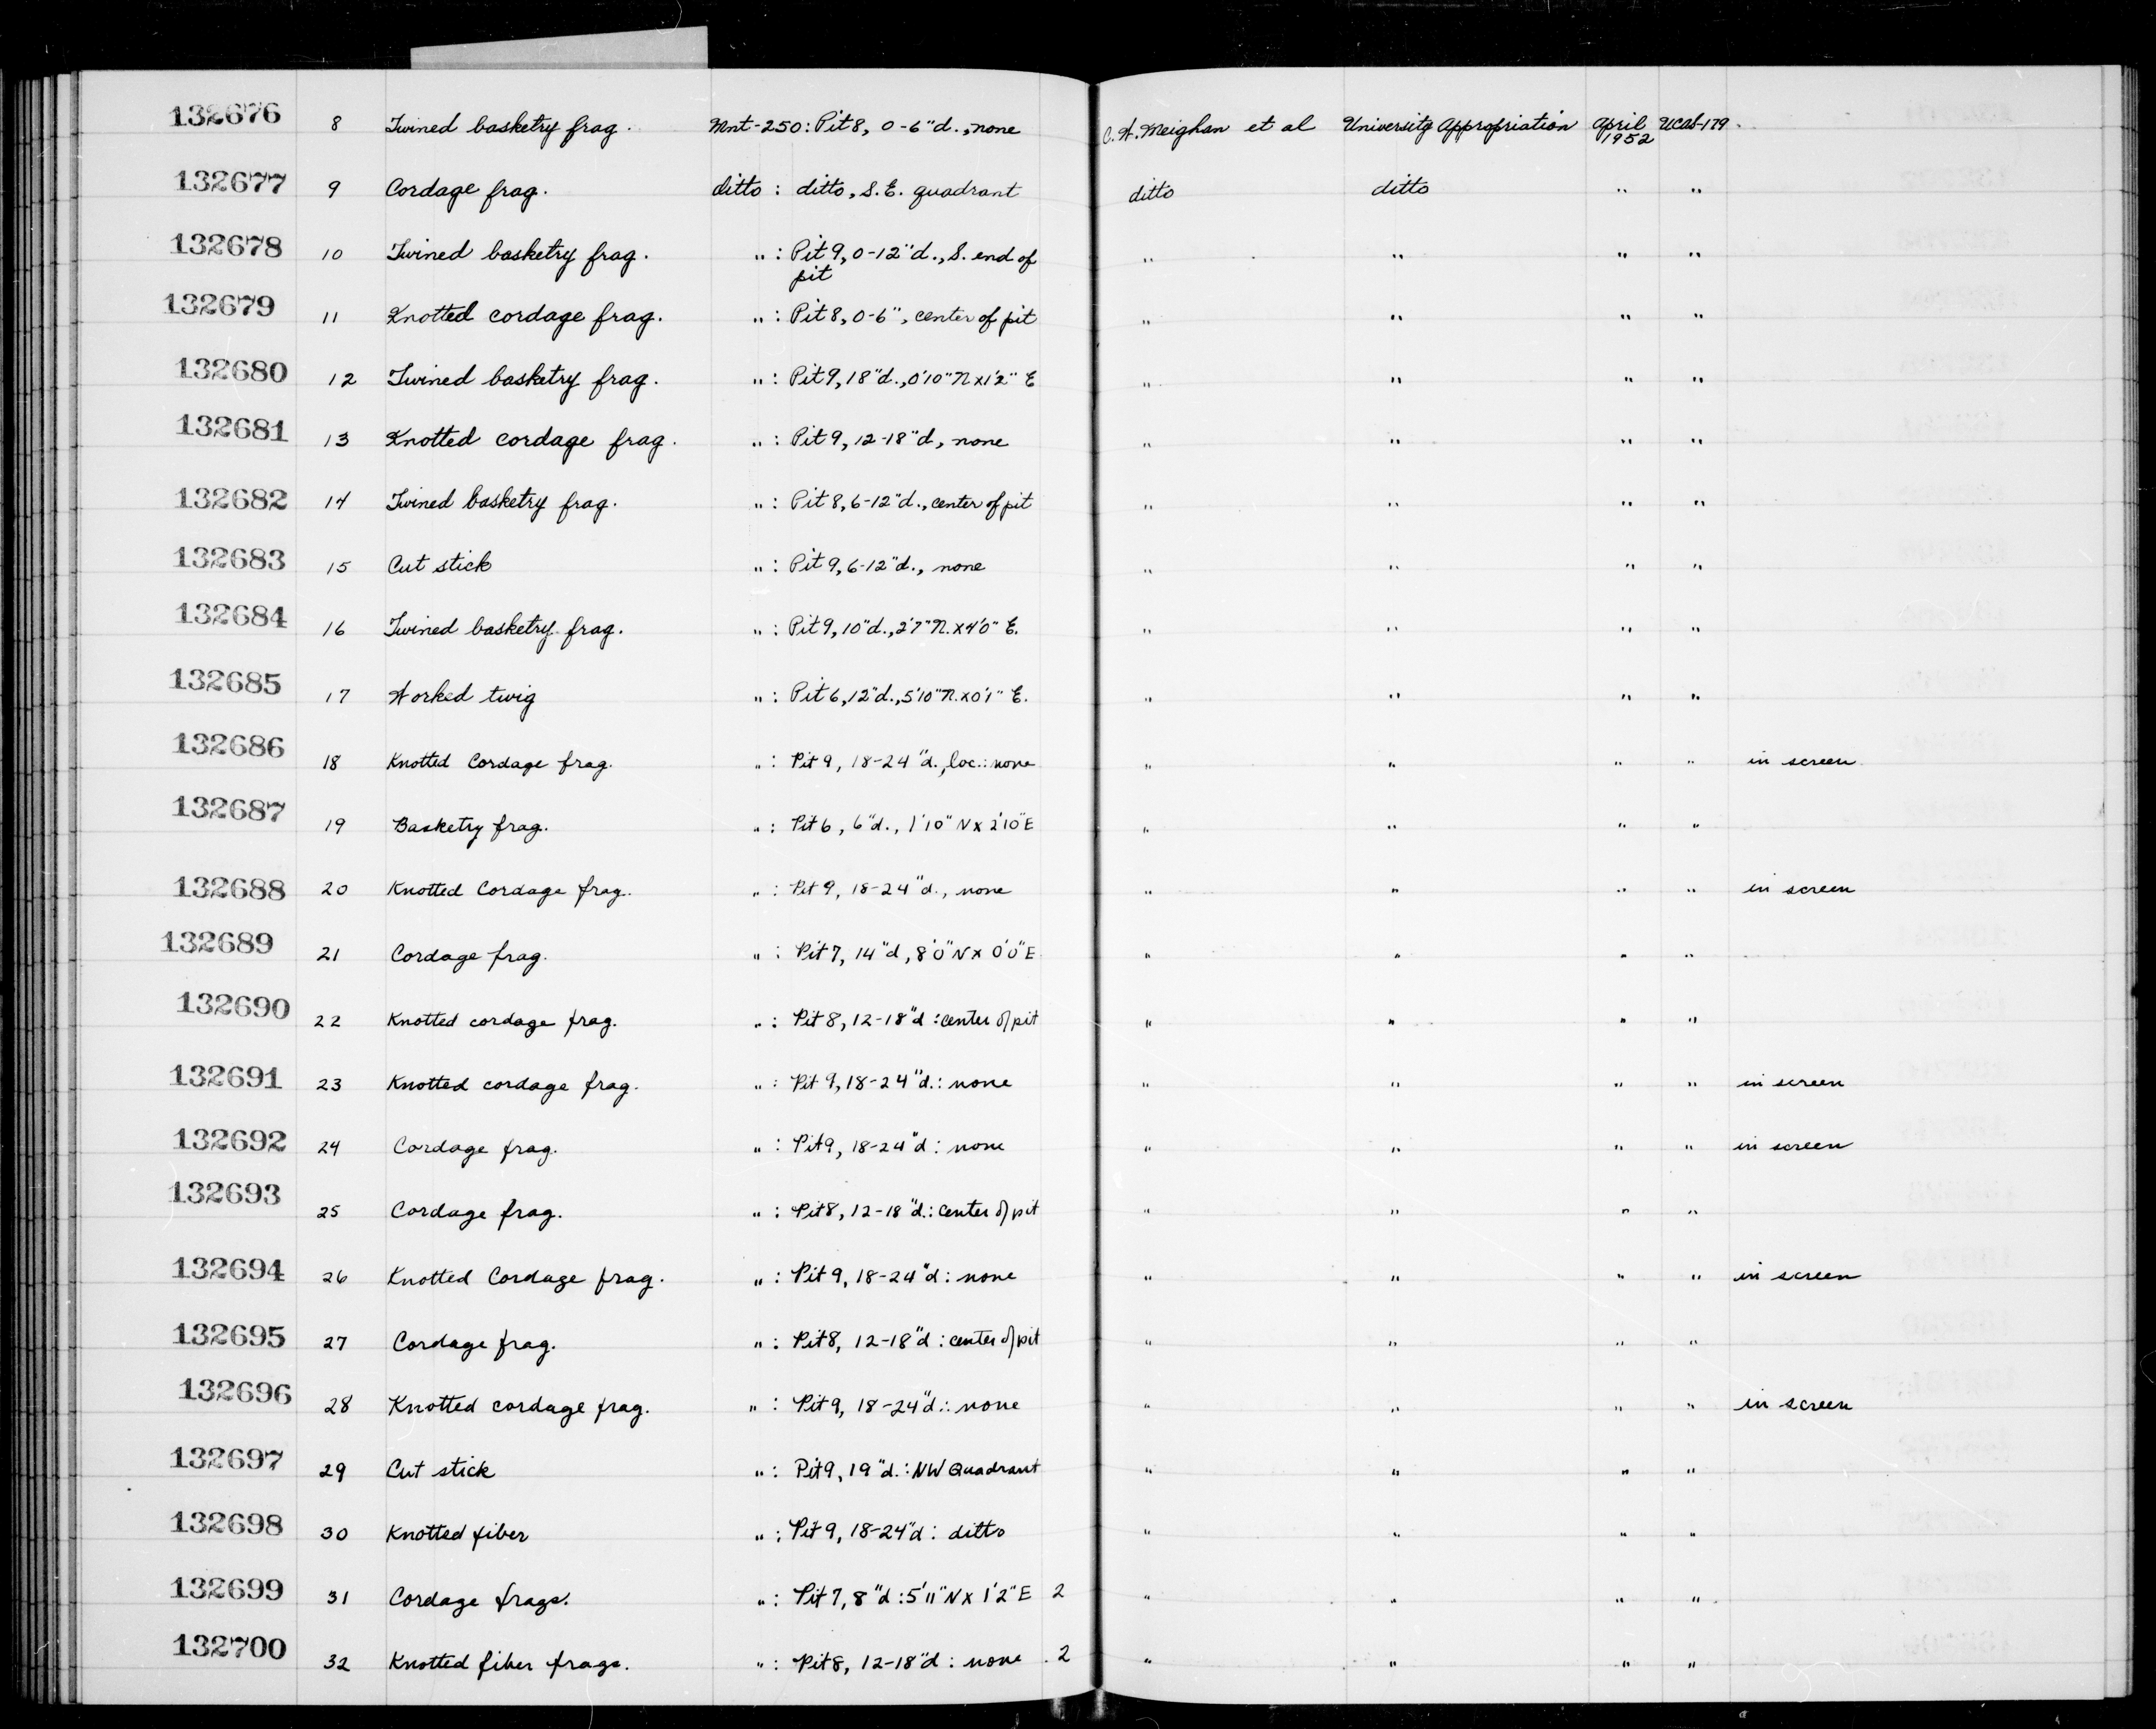 132676 8 Twined basketry frag. Mnt-250: Pit 8, 0-6"d., none C. W. Meighan et al University Appropriation April 1952 UCAS-179.
132677 9 Cordage frag. ditto : ditto, S.E. quadrant ditto ditto " "
132678 10 Twined basketry frag. " : Pit 9, 0-12"d., S. end of pit " " " "
132679 11 Knotted cordage frag. " : Pit 8, 0-6", center of pit " " " "
132680 12 Twined basketry frag. " : Pit 9, 18"d., 0'10" N x 1'2" E " " " "
132681 13 Knotted cordage frag. " : Pit 9, 12-18"d, none " " " "
132682 14 Twined basketry frag. " : Pit 8, 6-12"d., center of pit " " " "
132683 15 Cut stick " : Pit 9, 6-12"d., none " " " "
132684 16 Twined basketry frag. " : Pit 9, 10"d., 2'7" N. x 4'0" E. " " " "
132685 17 Worked twig " : Pit 6, 12"d., 5'10" N. x 0'1" E. " " " "
132686 18 Knotted Cordage frag. " : Pit 9, 18-24"d., loc.: none " " " " in screen
132687 19 Basketry frag. " : Pit 6, 6"d., 1'10" N x 2'10" E " " " "
132688 20 Knotted Cordage frag. " : Pit 9, 18-24"d., none " " " " in screen
132689 21 Cordage frag. " : Pit 7, 14"d, 8'0" N x 0'0" E " " " "
132690 22 Knotted cordage frag. " : Pit 8, 12-18"d : center of pit " " " "
132691 23 Knotted cordage frag. " : Pit 9, 18-24"d.: none " " " " in screen
132692 24 Cordage frag. " : Pit 9, 18-24"d : none " " " " in screen
132693 25 Cordage frag. " : Pit 8, 12-18"d.: center of pit " " " "
132694 26 Knotted Cordage frag. " : Pit 9, 18-24"d : none " " " " in screen
132695 27 Cordage frag. " : Pit 8, 12-18"d : center of pit " " " "
132696 28 Knotted cordage frag. " : Pit 9, 18-24"d.: none " " " " in screen
132697 29 Cut stick " : Pit 9, 19"d.: NW Quadrant " " " "
132698 30 Knotted fiber " : Pit 9, 18-24"d : ditto " " " "
132699 31 Cordage frags. " : Pit 7, 8"d : 5'11" N x 1'2" E 2 " " " "
132700 32 Knotted fiber frags. " : Pit 8, 12-18"d : none 2 " " " "